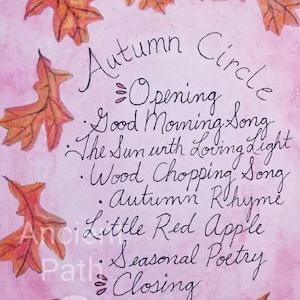 Autumn Circle
Opening
· Good Morning Song
· The Sun with Loving Light
· Wood Chopping Song
· Autumn Rhyme
· Little Red Apple
· Seasonal Poetry
Closing
Ancient
Path